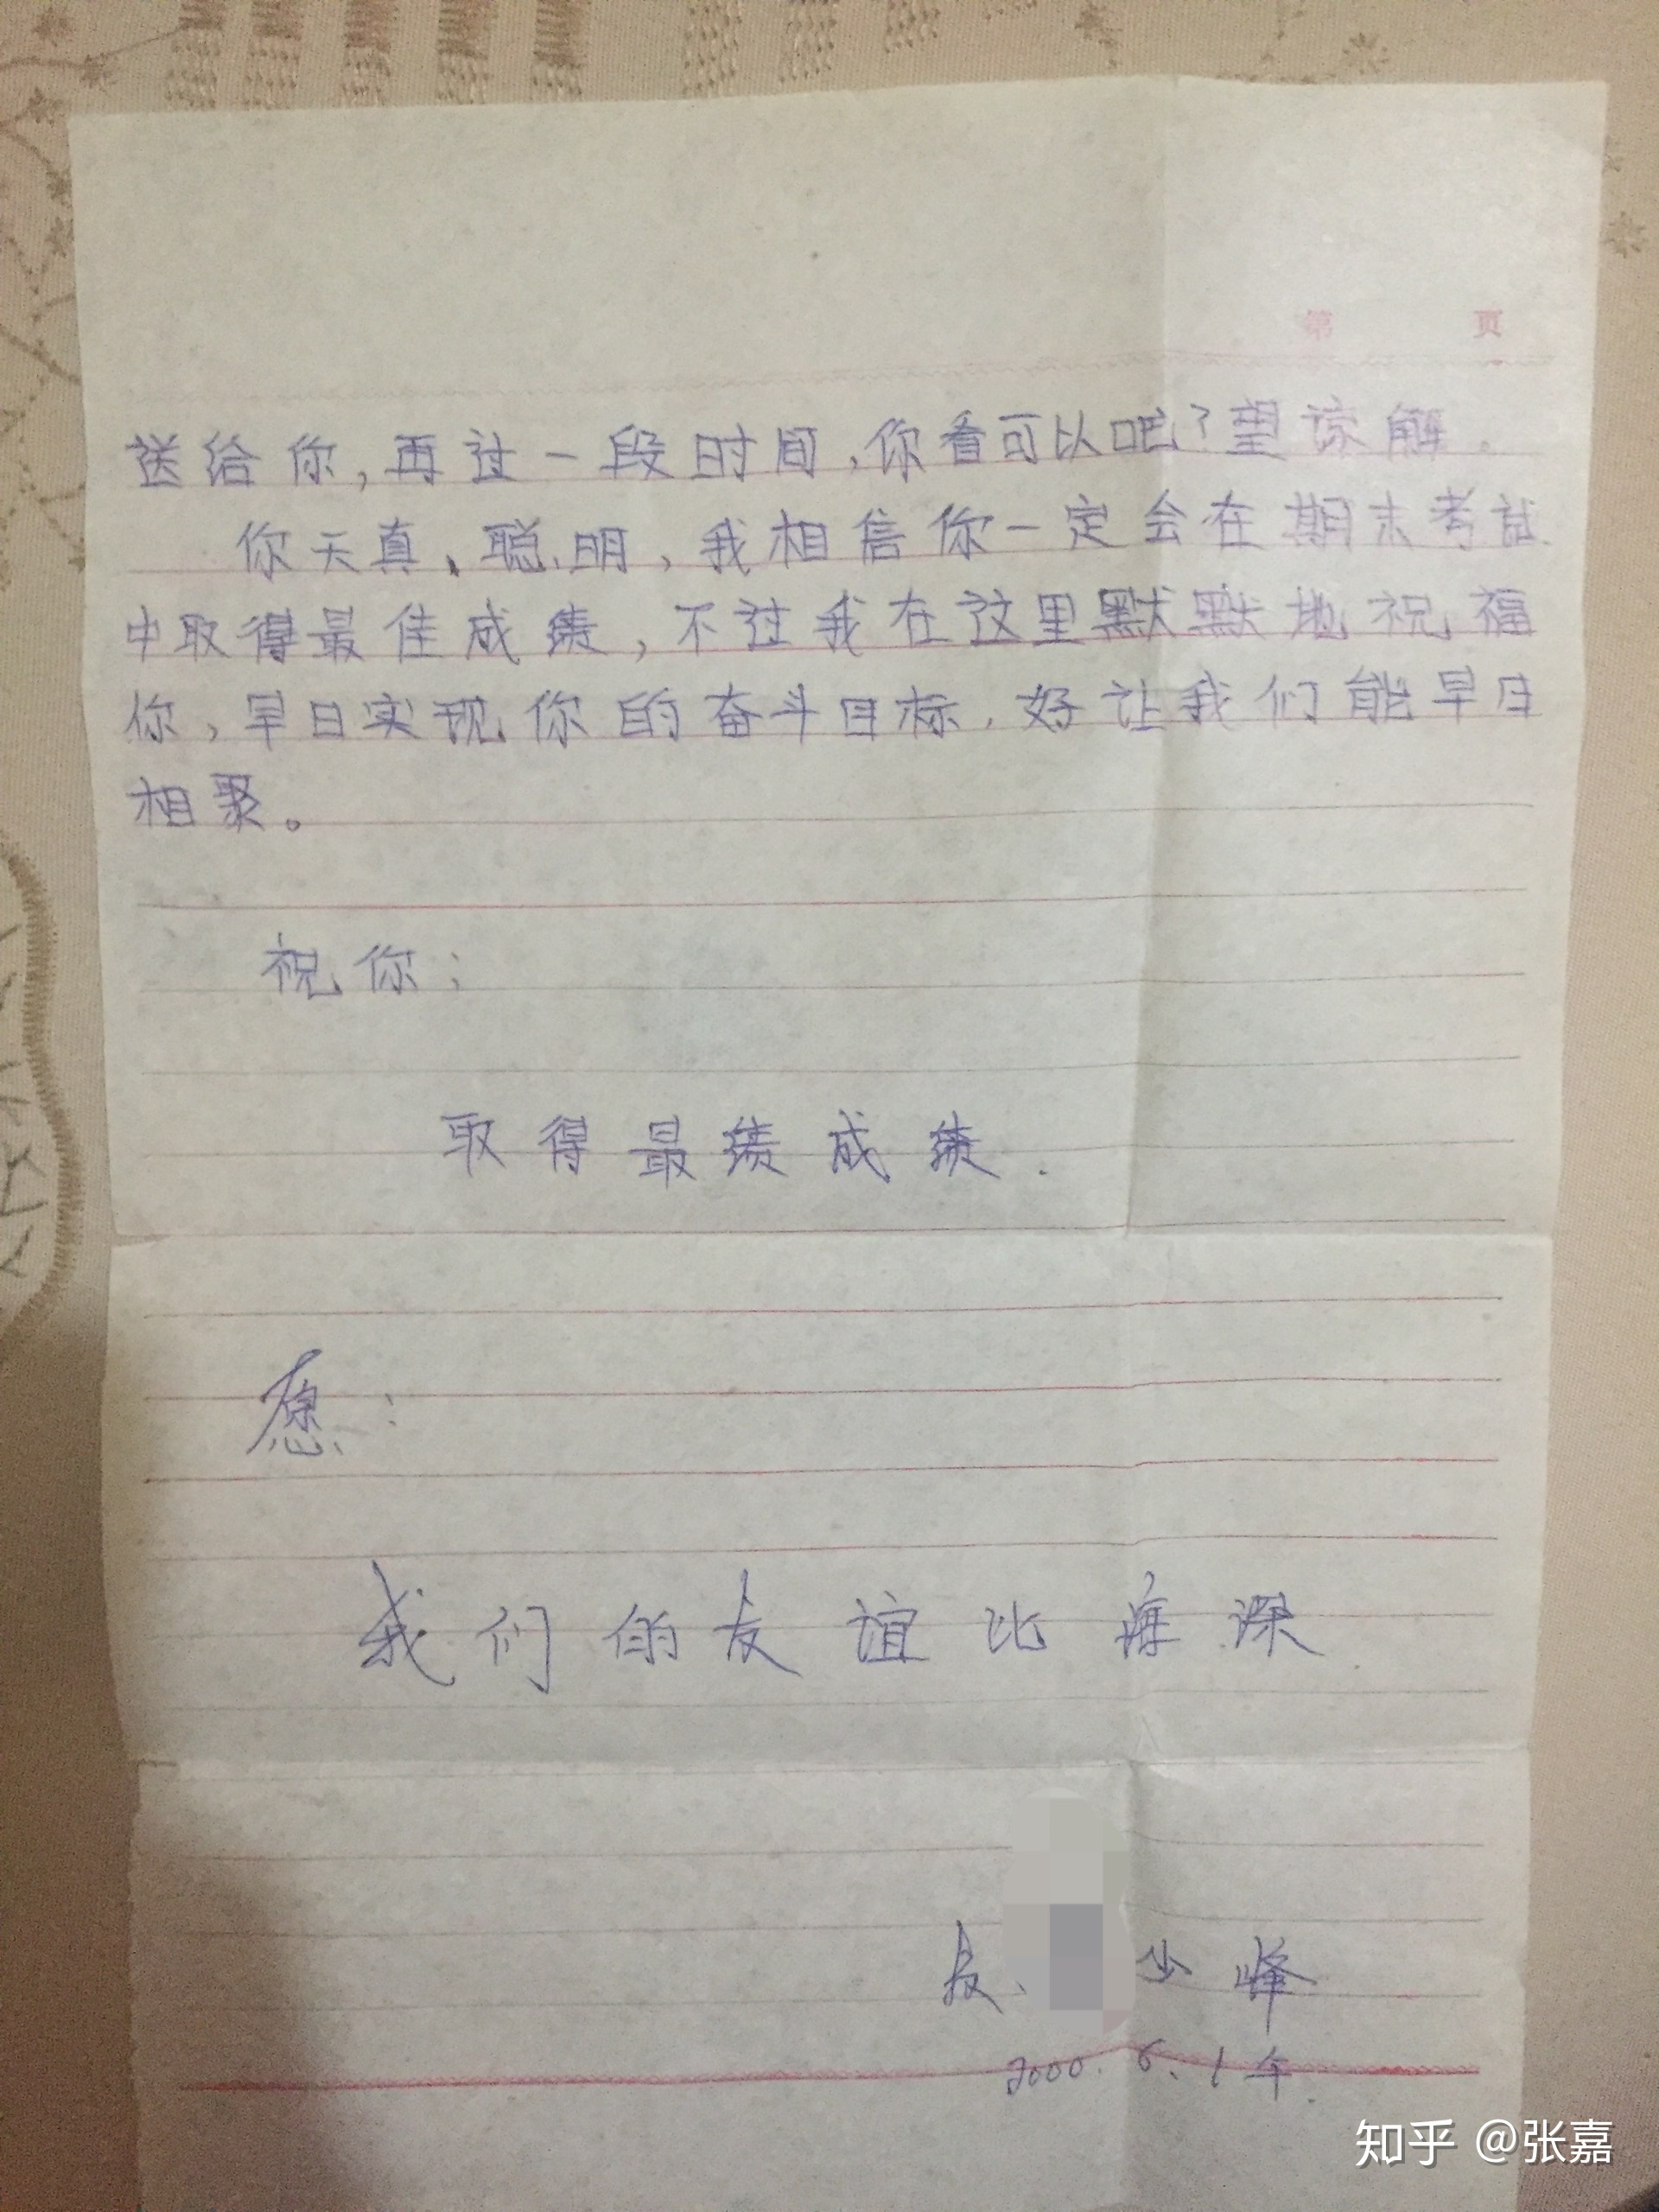 第 页
送给你,再过一段时间,你看可以吧?望谅解。
你天真、聪明,我相信你一定会在期末考试
中取得最佳成绩,不过我在这里默默地祝福
你,早日实现你的奋斗目标,好让我们能早日
相聚。
祝你:
取得最绩成绩.
愿:
我们的友谊比海深.
友、少峰
2000.6.1午
知乎 @张嘉